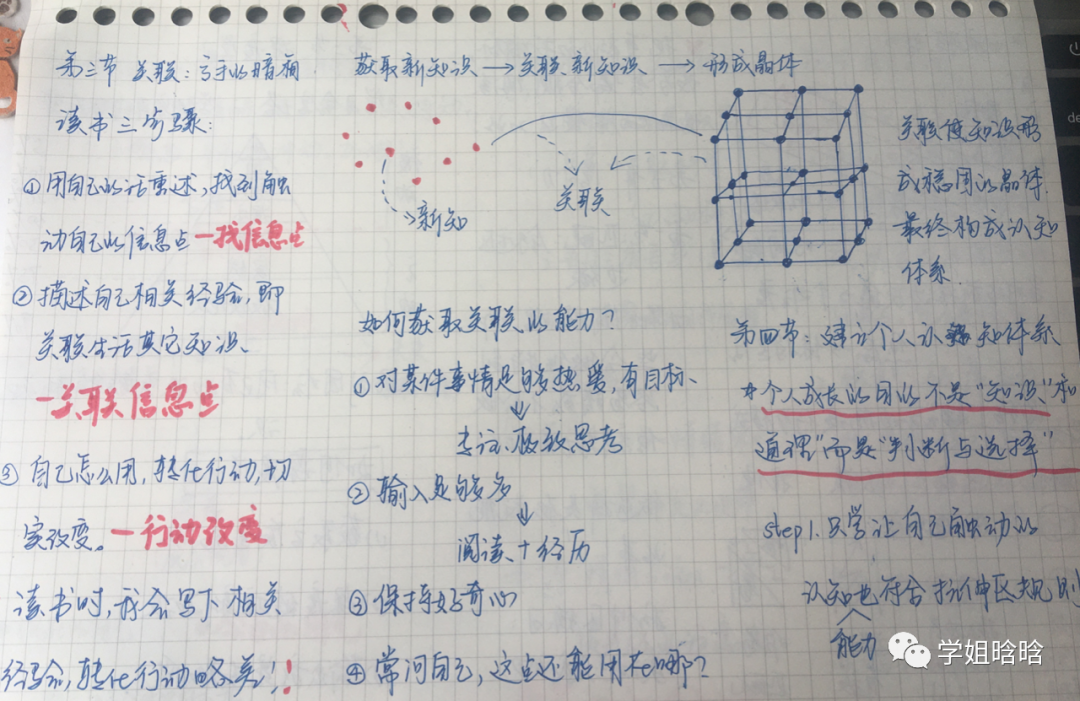 第三节 关联:高手的暗箱
读书三步骤:
①用自己的话重述,找到触
动自己的信息点 —找信息点
②描述自己相关经验,即
关联生活其它知识、
—关联信息点
③自己怎么用,转化行动,切
实改变。—行动改变
读书时,我会写下相关
经验,转化行动略差!!
获取新知识→关联新知识→形成晶体
新知
关联
如何获取关联的能力?
①对某件事情足够热爱,有目标、
专注、极致思考
②输入足够多
阅读+经历
③保持好奇心
④常问自己,这点还能用在哪?
关联使知识形
成稳固的晶体.
最终构成认知
体系.
第四节:建立个人认知体系
个人成长的目的不是“知识”和
道理”而是“判断与选择”
step1.只学让自己触动的
认知也符合拉伸区规则
能力
学姐晗晗
de